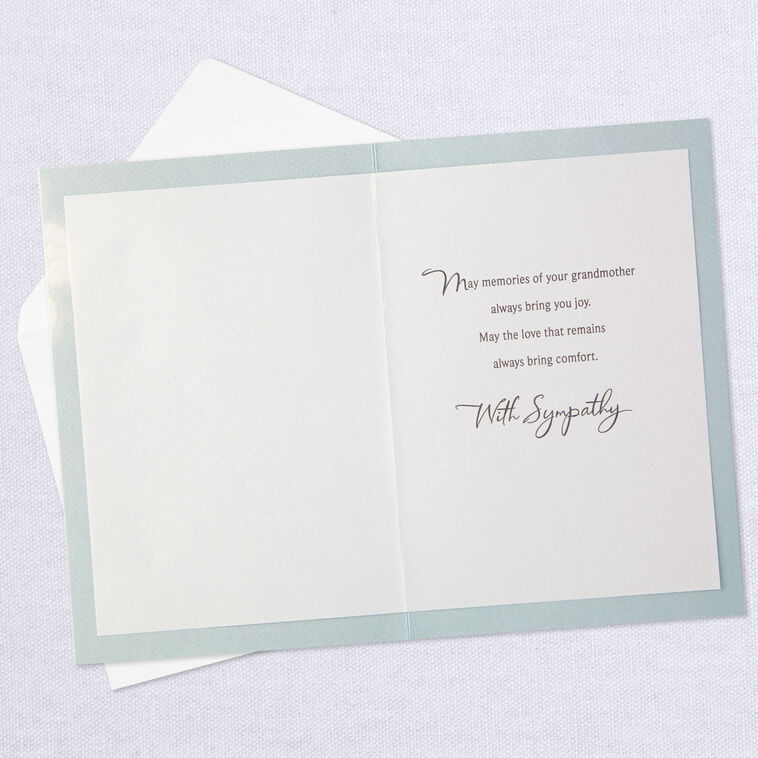 May memories of your grandmother
always bring you joy.
May the love that remains
always bring comfort.
With Sympathy